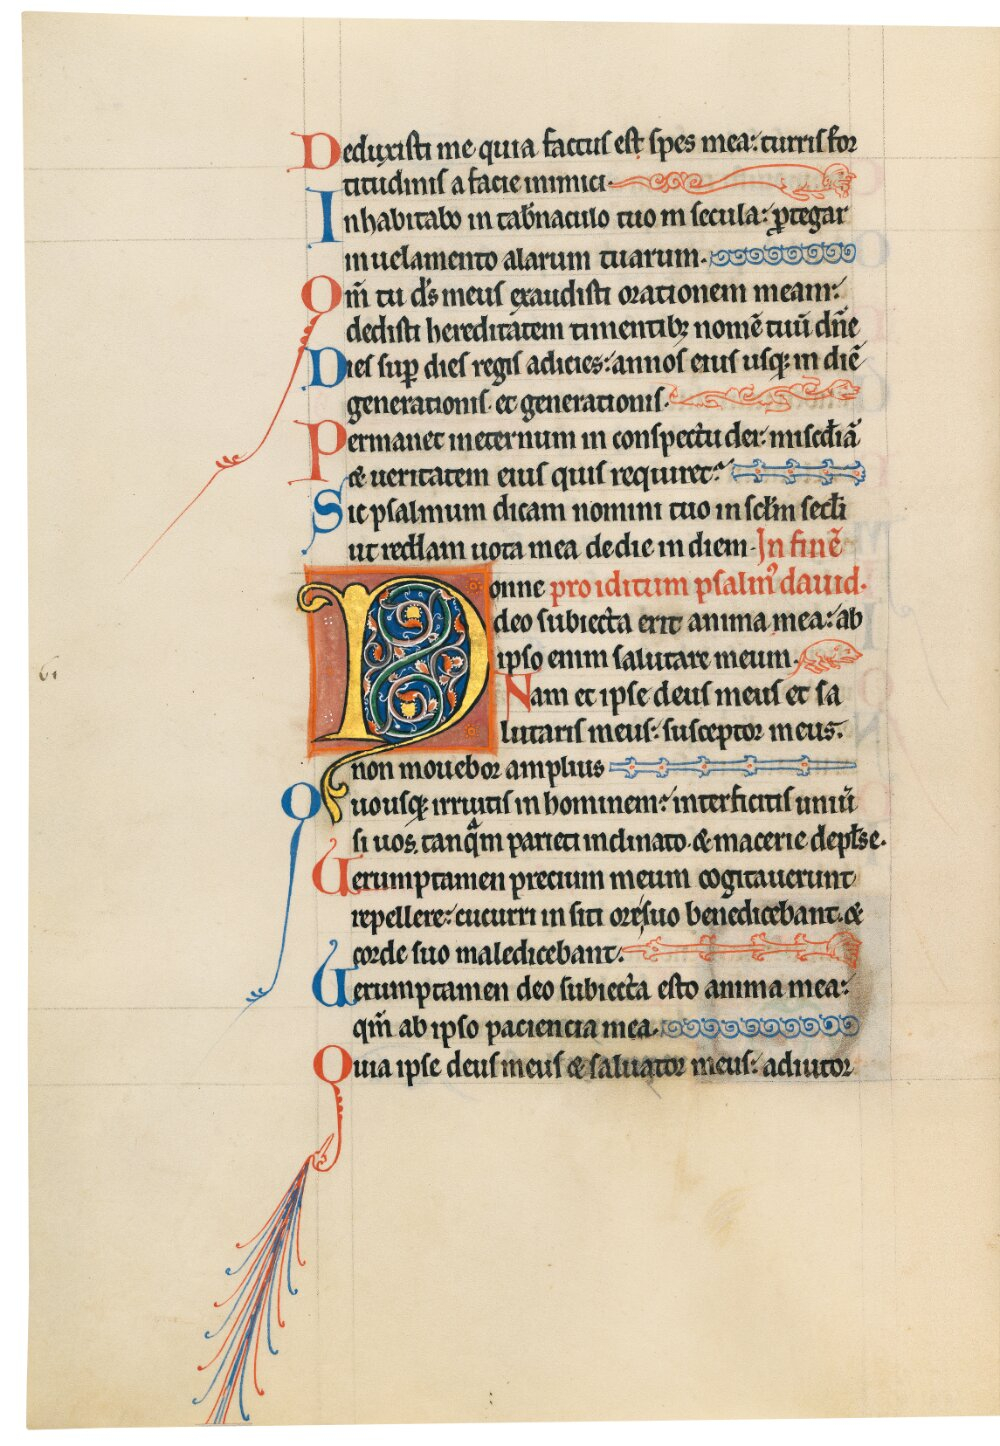 Deduxisti me quia factus est spes mea: turris for
titudinis a facie inimici.
Inhabitabo in tab̄naculo tuo in secula: ꝓtegar
in uelamento alarum tuarum.
Qm̄ tu d̄s meus exaudisti orationem meam:
dedisti hereditatem timentibꝫ nomē tuū dn̄e
Dies suꝑ dies regis adicies: annos eius usqꝫ in diē
generationis et generationis.
Permanet in eternum in conspectu dei: misc̄diā
& ueritatem eius quis requiret?
Sic psalmum dicam nomini tuo in sc̄lm sc̄li
ut reddam uota mea de die in diem. In finē
Nonne pro iditum psalm̄ dauid.
deo subiecta erit anima mea: ab
ipso enim salutare meum.
Nam et ipse deus meus et sa
lutaris meus: susceptor meus.
non mouebor amplius
Quousqꝫ irruitis in hominem: interficitis uniūsi
si uos. tanq̄m parieti inclinato. & macerie depl̄se.
Uerumptamen precium meum cogitauerunt
repellere: cucurri in siti ore suo benedicebant. &
corde suo maledicebant.
Uerumptamen deo subiecta esto anima mea:
qm̄ ab ipso paciencia mea.
Quia ipse deus meus & saluator meus: adiutor
61